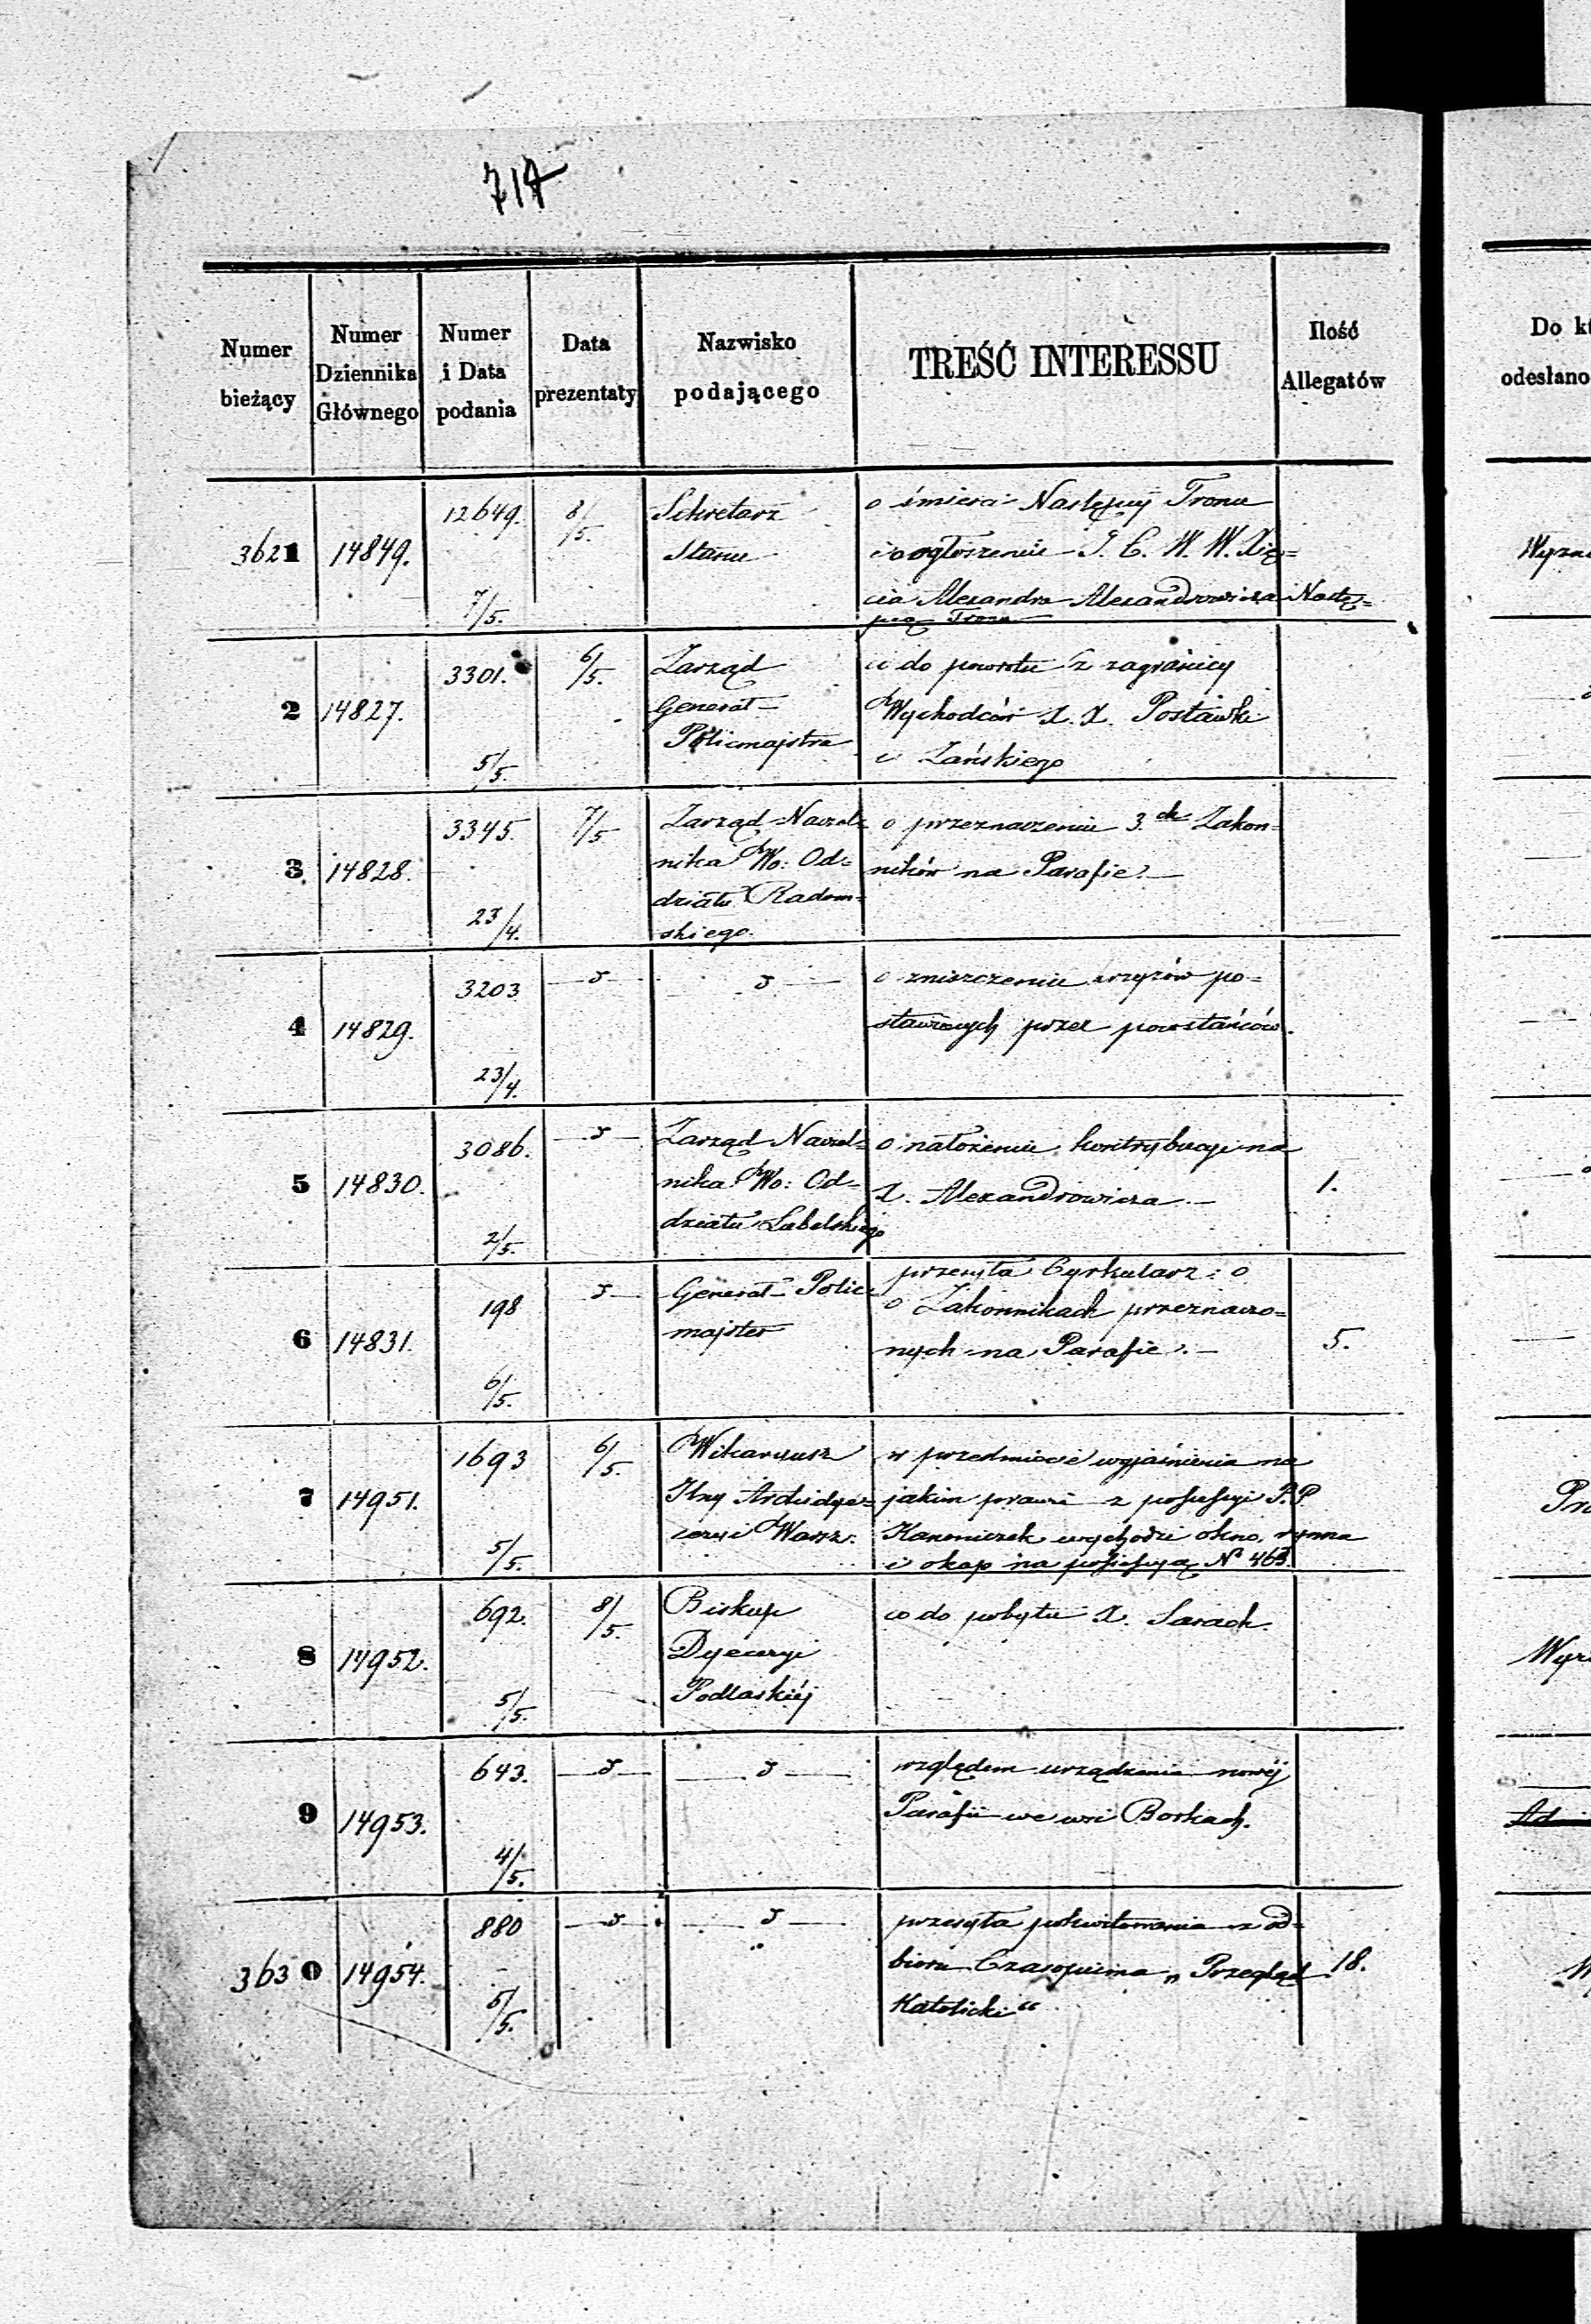 717
Numer bieżący
Numer Dziennika Głównego
Numer i Data podania
Data prezentaty
Nazwisko podającego
TREŚĆ INTERESSU
Ilość Allegatów
Do
odesłano
3621
14849.
12649.
7/5.
8/5.
Sekretarz
Stanu
o śmierci Następcy Tronu
i o ogłoszeniu J. C. W. W. Xię=
cia Alexandra Alexandrowicza Nastę=
pcą Tronu
2
14827.
3301.
5/5.
6/5.
Zarząd
Generał
Policmajstra
co do powrotu z zagranicy
Wychodców X. X. Postawki
i Zańskiego
3
14828.
3345.
23/4.
7/5
Zarząd Naczel=
nika Wo: Od=
działu Radom=
skiego.
o przeznaczeniu 3.ch Zakon=
ników na Parafie.
4
14829.
3203
23/4.
o zniszczeniu krzyżów po=
stawionych przez powstańców.
5
14830.
3086.
2/5.
Zarząd Naczel=
nika Wo: Od=
działu Lubelskiego
o nałożeniu kontrybucyi na
X. Alexandrowicza
1.
6
14831.
198
6/5.
Generał Polic=
majster
przesyła Cyrkularz: o
o Zakonnikach przeznaczo=
nych na Parafie.
5.
7
14951.
1693
5/5.
6/5.
Wikaryusz
Jlny Archidye=
cezyi Warsz:
w przedmiocie wyjaśnienia na
jakim prawie z possessyi P.P.
Kanoniczek wychodzi okno, rynna
i okap na possessyą No 463.
8
14952.
692.
5/5.
8/5.
Biskup
Dyecezyi
Podlaskiéj
co do pobytu X. Sarach.
9
14953.
643.
4/5.
względem urządzenia nowéj
Parafii we wsi Borkach.
3630
14954.
880
5/5.
przesyła pokwitowania z od=
bioru Czasopisma „Przegląd
Katolicki"
18.